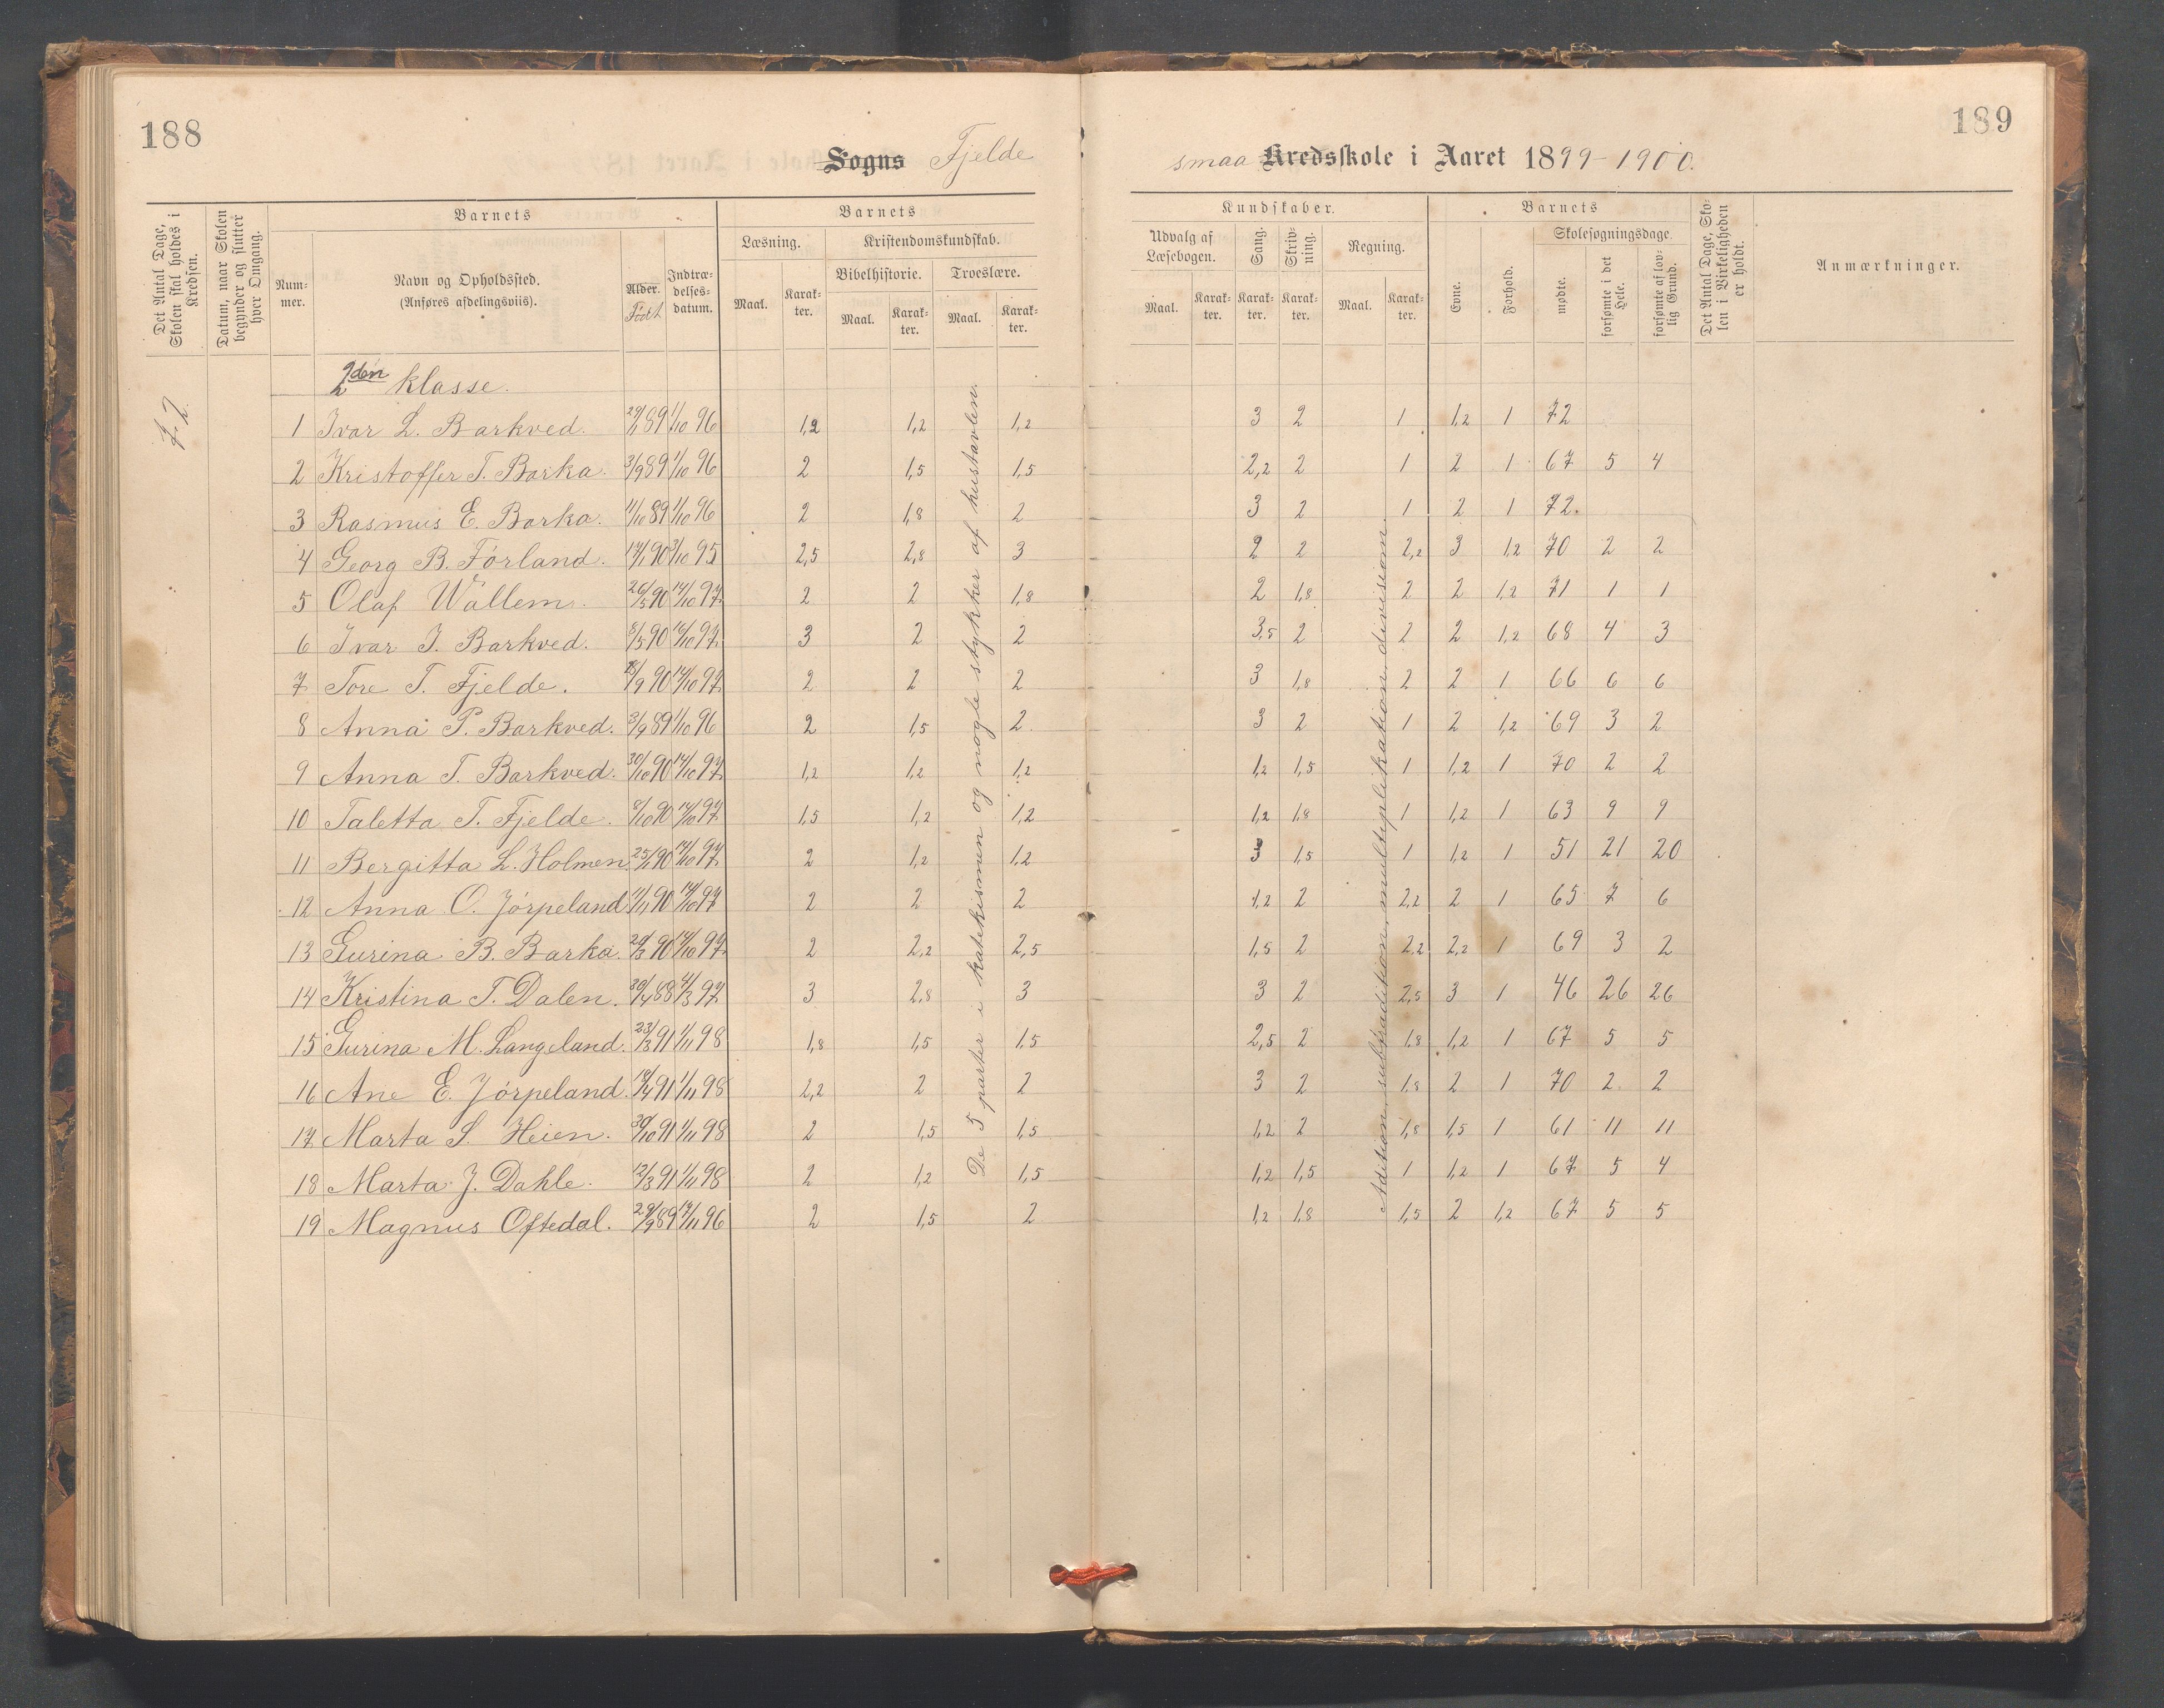 188
Sogns Fjelde
Det Antal Dage, Skolen skal holdes i Kredsen.
Datum, naar Skolen begynder og slutter hver Omgang.
Barnets
Num-mer.
Navn og Opholdssted.
(Anføres afdelingsviis).
Alder. Født
Indtræ-delses-datum.
Barnets
Læsning.
Kristendomskundskab.
Bibelhistorie.
Troeslære.
Maal. Karak-ter. Maal. Karak-ter. Maal. Karak-ter.
189
smaa Kredsskole i Aaret 1899-1900.
Kundskaber.
Udvalg af Læsebogen.
Sang.
Skriv-ning.
Regning.
Maal. Karak-ter. Karak-ter. Karak-ter. Maal. Karak-ter.
Barnets
Evne.
Forhold.
Skolesøgningsdage.
mødte.
forsømte i det Hele.
forsømte af lov-lig Grund.
Det Antal Dage, Sko-len i Virkeligheden er holdt.
Anmærkninger.
72
2den klasse.
1 Ivar L. Barkved. 29/1 89 1/10 96 1,2 1,2 1,2 3 2 1 1,2 1 72
2 Kristoffer T. Barka. 3/9 89 1/10 96 2 1,5 1,5 2,2 2 1 2 1 67 5 4
3 Rasmus E. Barka. 11/10 89 1/10 96 2 1,8 2 3 2 1 2 1 72.
4 Georg B. Førland. 14/1 90 3/10 95 2,5 2,8 3 2 2 2,2 3 1,2 70 2 2
5 Olaf Wallem. 26/5 90 14/10 97 2 2 1,8 2 1,8 2 2 1,2 71 1 1
6 Ivar J. Barkved. 8/5 90 14/10 97. 3 2 2 3,5 2 2 2 1,2 68 4 3
7 Tore T. Fjelde. /9 90 14/10 97 2 2 2 3 1,8 2 2 1 66 6 6
8 Anna P. Barkved. 3/9 89 1/10 96 2 1,5 2. 3 2 1 2 1,2 69 3 2
9 Anna T. Barkved. 30/10 90 14/10 97 1,2 1,2 1,2 1,2 1,5 1 1,2 1 70 2 2
10 Taletta T. Fjelde. 8/10 90 14/10 97 1,5 1,2 1,2 1,2 1,8 1 1,2 1 63 9 9
11 Bergitta L. Holmen 25/1 90 14/10 97 2 1,2 1,2 3 1,5 1 1,2 1 51 21 20
12 Anna O. Jørpeland 11/11 90 14/10 97 2 2 2 1,2 2 2,2 2 1 65 7 6
13 Gurina B. Barka. 29/3 90 14/10 97. 2 2,2 2,5 1,5 2 2,2 2,2 1 69 3 2
14 Kristina T. Dalen. 30/4 88 4/3 97 3 2,8 3 3 2 2,5 3 1 46 26 26
15 Gurina M. Langeland. 23/3 91 1/11 98 1,8 1,5 1,5 2,5 2 1,8 1,2 1 67 5 5
16 Ane E. Jørpeland. 18/4 91 1/11 98 2,2 2 2 3 2 1,8 2 1 70 2. 2
17 Marta S. Heien. 30/10 91 1/11 98 2 1,5 1,5 1,2 2 1,8 1,5 1 61 11 11
18 Marta J. Dahle. 12/3 91 1/11 98 2 1,2 1,5 1,2 1,5 1 1,2 1 67 5 4
19 Magnus Oftedal. 29/9 89 14/11 96 2 1,5 2 1,2 1,8 1,5 2 1,2 67 5 5
De 5 parter i katekismen og nogle stykker af hustavlen.
Adition, subtradition, multeplikation, division.